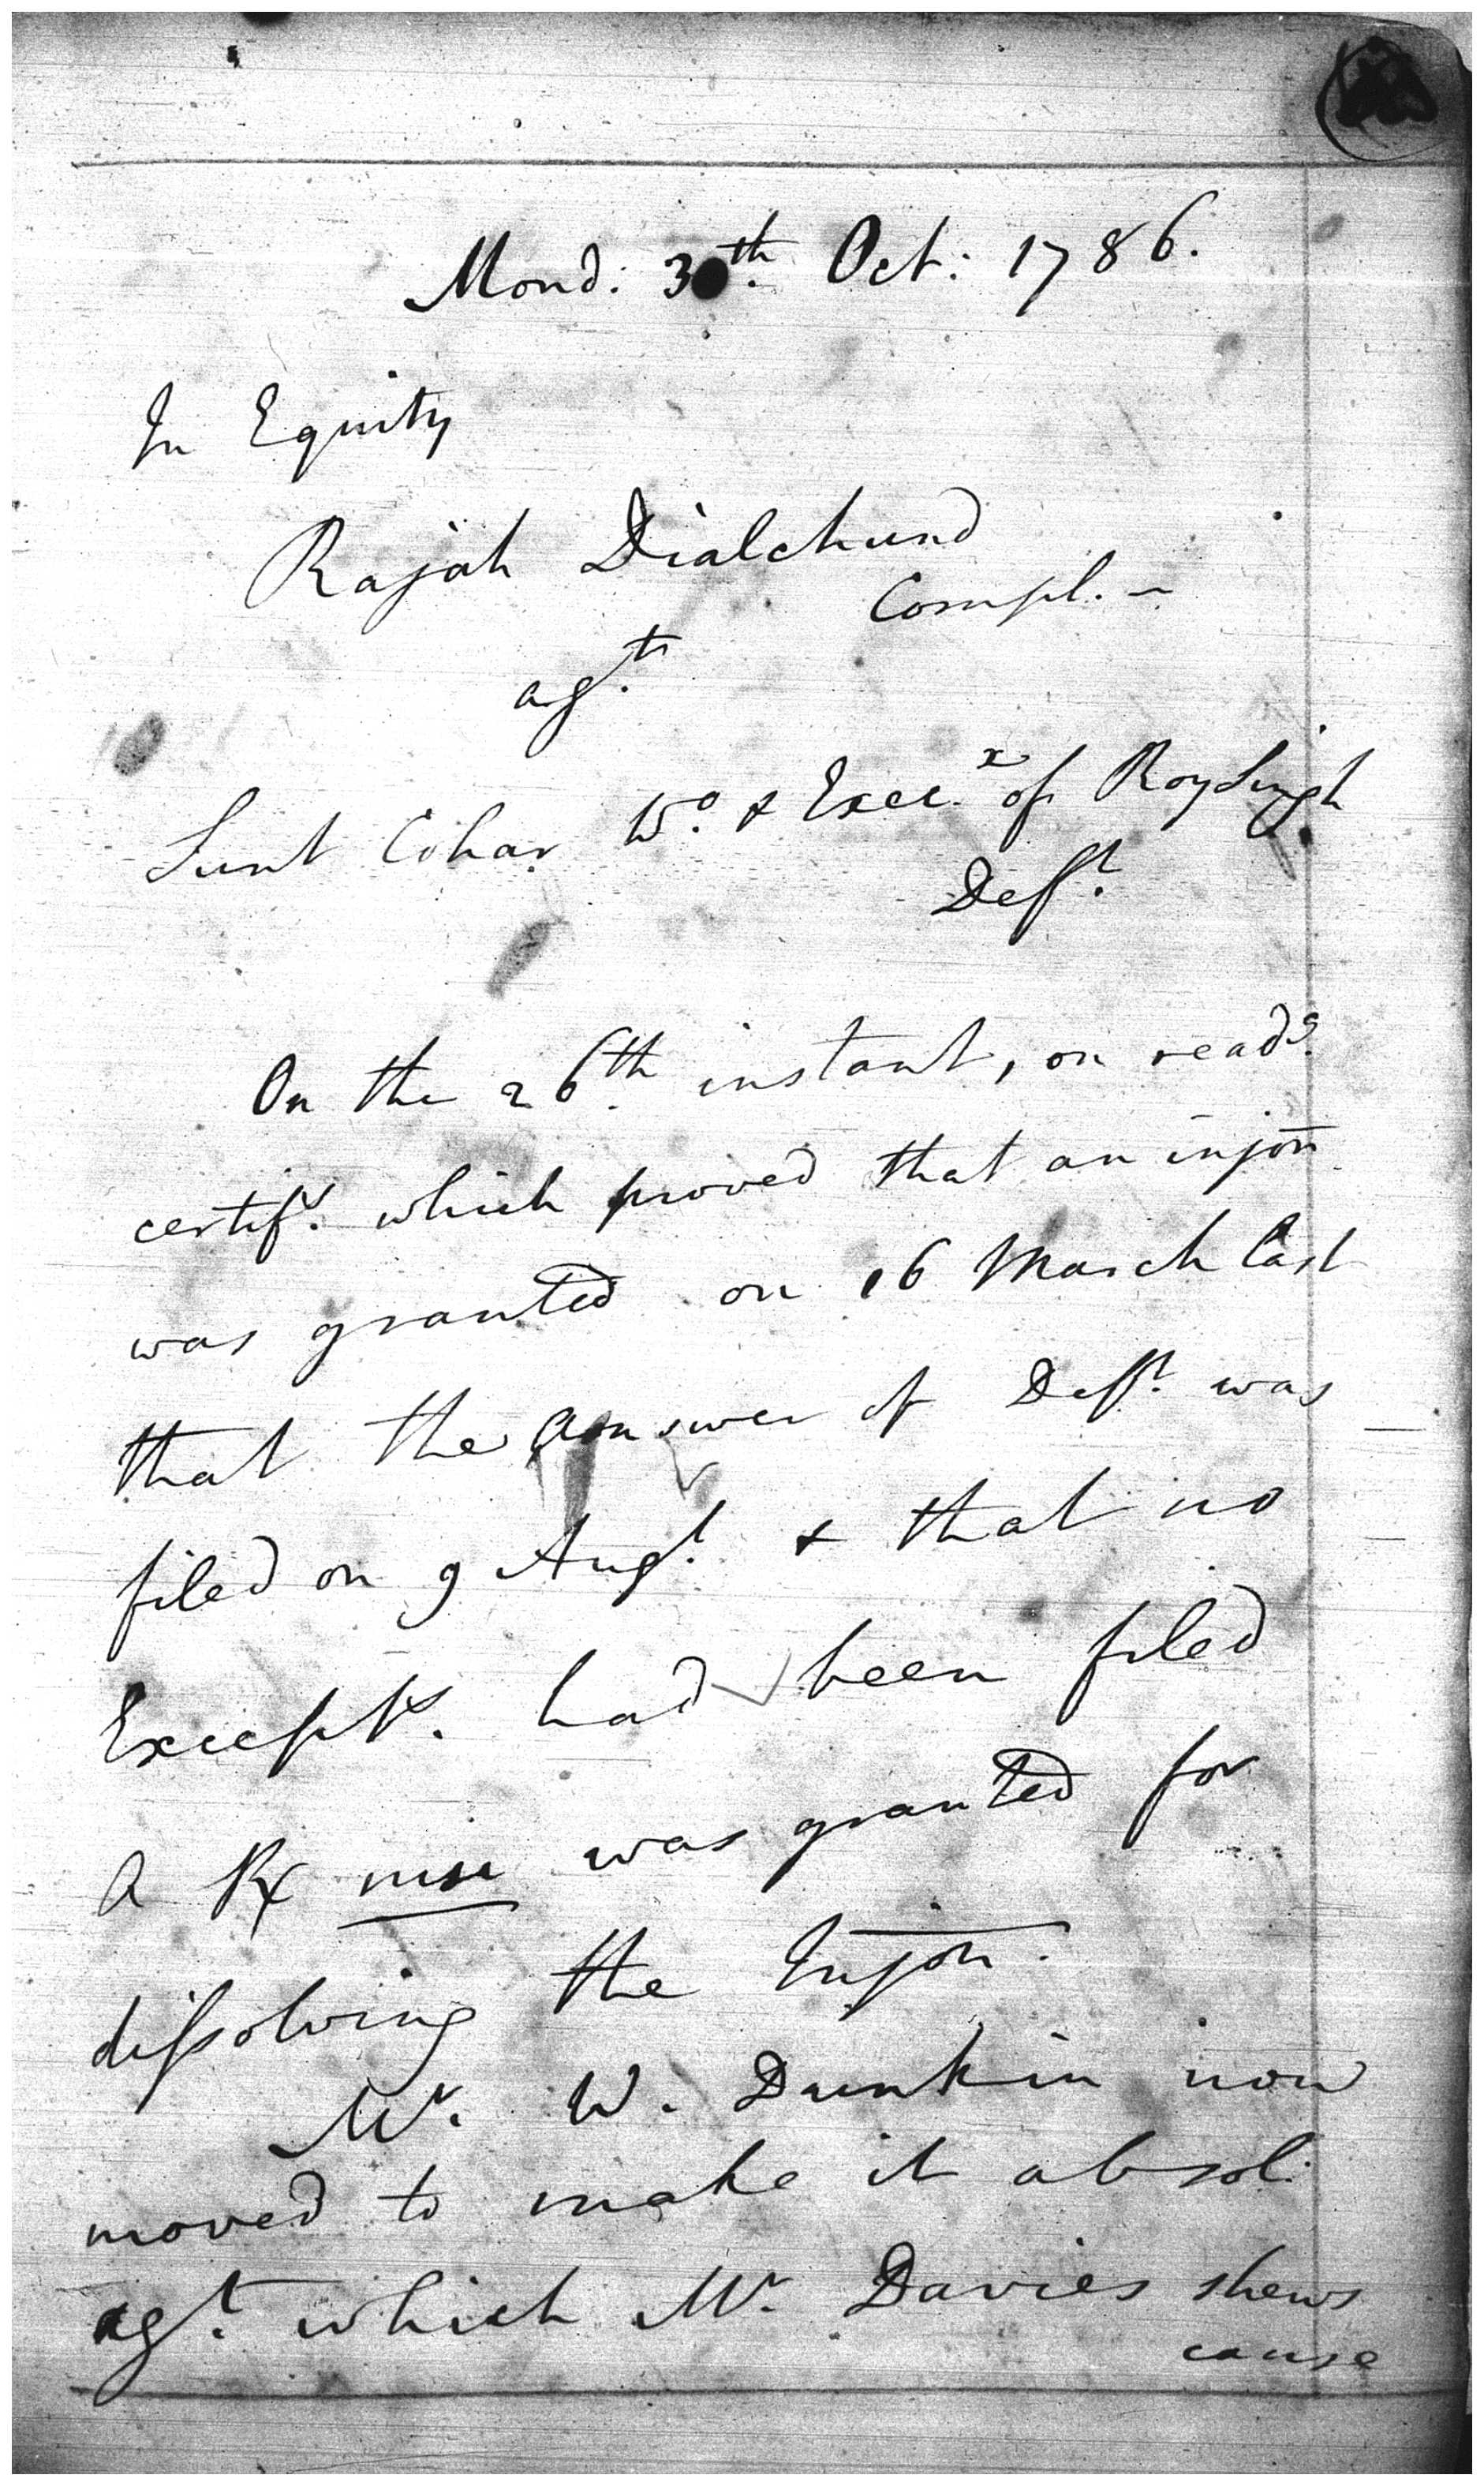 Mond: 30th. Oct: 1786.
In Equity
Rajah Dialchund
Compl. -
agt.
Sunt Cohar Wo. & Execx. of Roy Singh
Defft.
On the 26th. instant, on readg.
certife. which proved that an injon.
was granted on 16 March last
that the answer of Defft. was
filed on 9 Augt. & that no
Exceptns. had been filed
A Rx nisi was granted for
dissolving the Injon.
Mr. W. Dunkin now
moved to make it absol:
agt. which Mr. Davies shews
cause